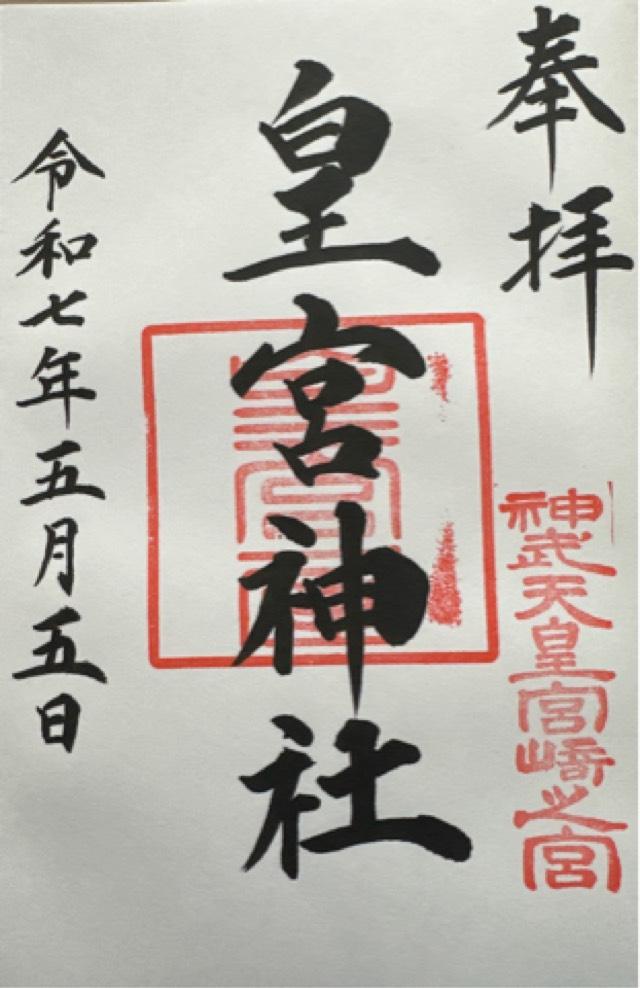 奉拝
神武天皇宮崎之宮
皇宮神社
令和七年五月五日